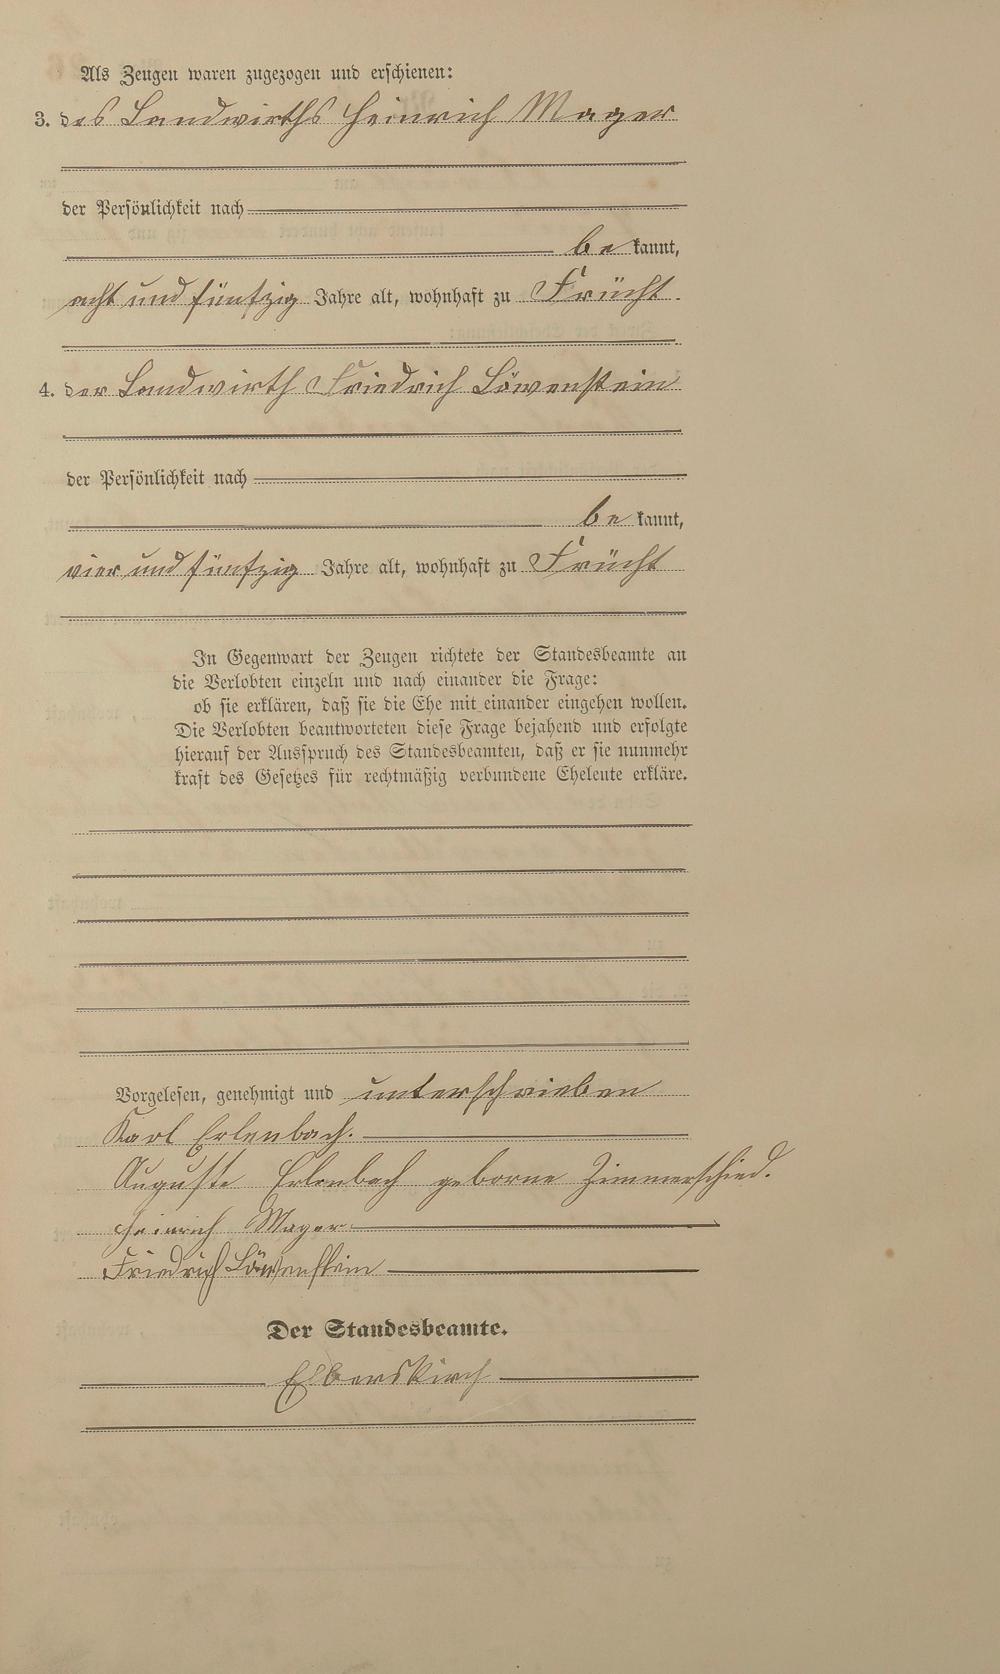 Als Zeugen waren zugezogen und erschienen:
3. des Landwirths Heinrich Mager
der Persönlichkeit nach
be kannt,
acht und fünfzig Jahre alt, wohnhaft zu Frücht.
4. der Landwirth Friedrich Löwenstein
der Persönlichkeit nach
be kannt,
vier und fünfzig Jahre alt, wohnhaft zu Frücht
In Gegenwart der Zeugen richtete der Standesbeamte an
die Verlobten einzeln und nach einander die Frage:
ob sie erklären, daß sie die Ehe mit einander eingehen wollen.
Die Verlobten beantworteten diese Frage bejahend und erfolgte
hierauf der Ausspruch des Standesbeamten, daß er sie nunmehr
kraft des Gesetzes für rechtmäßig verbundene Eheleute erkläre.
Vorgelesen, genehmigt und unterschrieben
Karl Erlenbach.
Auguste Erlenbach geborne Zimmerschied.
Heinrich Mager
Friedrich Löwenstein
Der Standesbeamte.
Elberskirch